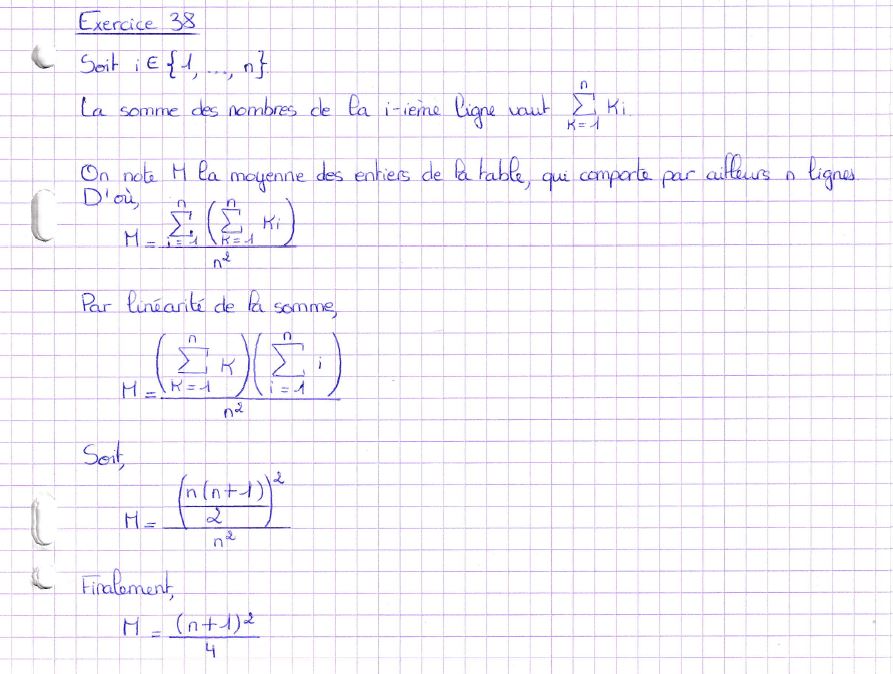 Exercice 38
Soit i ∈ {1, ..., n}.
La somme des nombres de la i-ième ligne vaut $\sum_{k=1}^{n} ki$.
On note M la moyenne des entiers de la table, qui comporte par ailleurs n lignes.
D'où,
$M = \frac{\sum_{i=1}^{n} \left( \sum_{k=1}^{n} ki \right)}{n^2}$
Par linéarité de la somme,
$M = \frac{\left( \sum_{k=1}^{n} k \right) \left( \sum_{i=1}^{n} i \right)}{n^2}$
Soit,
$M = \frac{\left( \frac{n(n+1)}{2} \right)^2}{n^2}$
Finalement,
$M = \frac{(n+1)^2}{4}$